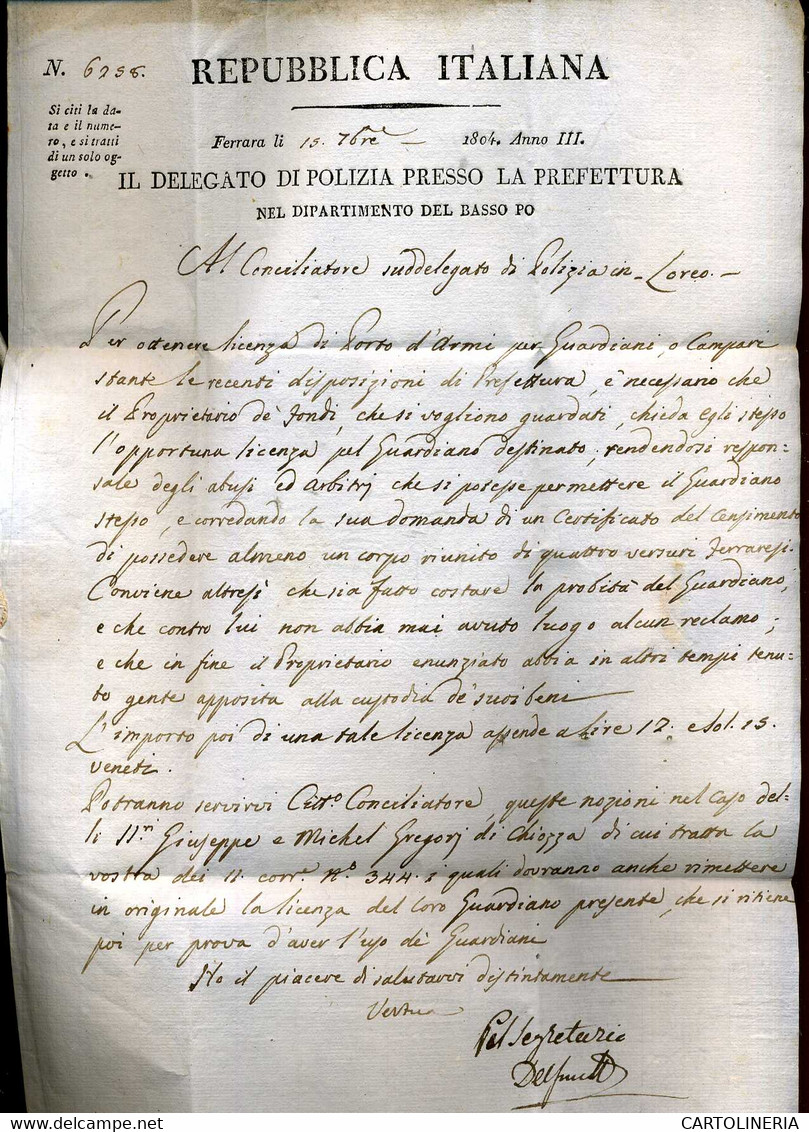 N. 6258.
REPUBBLICA ITALIANA
Si citi la da-
ta e il nume-
ro, e si tratti
di un solo og-
getto.
Ferrara li 15. 7bre 1804. Anno III.
IL DELEGATO DI POLIZIA PRESSO LA PREFETTURA
NEL DIPARTIMENTO DEL BASSO PO
Al Conciliatore suddelegato di Polizia in Loreo.
Per ottenere licenza di Porto d'Armi per Guardiani, o Campari
stante le recenti disposizioni di Prefettura, è necessario che
il Proprietario de' fondi, che si vogliono guardati, chieda egli stesso
l'opportuna licenza pel Guardiano destinato, rendendosi respon-
sale degli abusi ed arbitrj che si potesse permettere il Guardiano
stesso, e corredando la sua domanda di un Certificato del Censimento
di possedere almeno un corpo riunito di quattro versuri Ferraresi.
Conviene altresì che sia fatto costare la probità del Guardiano,
e che contro lui non abbia mai avuto luogo alcun reclamo;
e che in fine il Proprietario enunziato abbia in altri tempi tenu-
to gente apposita alla custodia de' suoi beni
L'importo poi di una tale licenza assende a lire 12. e sol. 15.
veneti.
Potranno servirvi Citt.o Conciliatore, queste nozioni nel caso del-
li Giuseppe e Michel Gregorj di Chiozza di cui tratta la
vostra dei 11. corr.e N.o 344. i quali dovranno anche rimettere
in originale la licenza del loro Guardiano presente, che si ritiene
poi per prova d'aver l'uso de' Guardiani
Ho il piacere di salutarvi distintamente
Pel Segretario
CARTOLINERIA